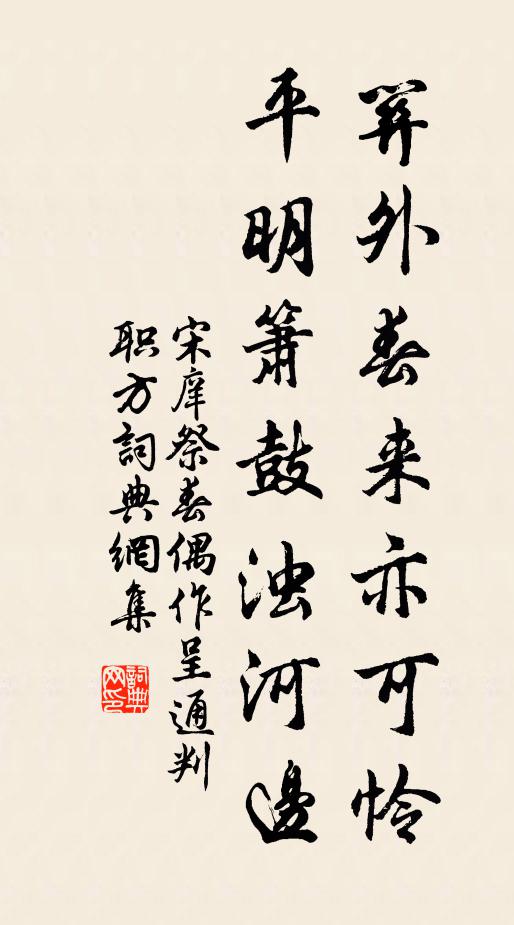 关外春来亦可怜
平明簫鼓浊河邊
宋庠祭春偶作呈通判
职方詞典網集
詞典
网印